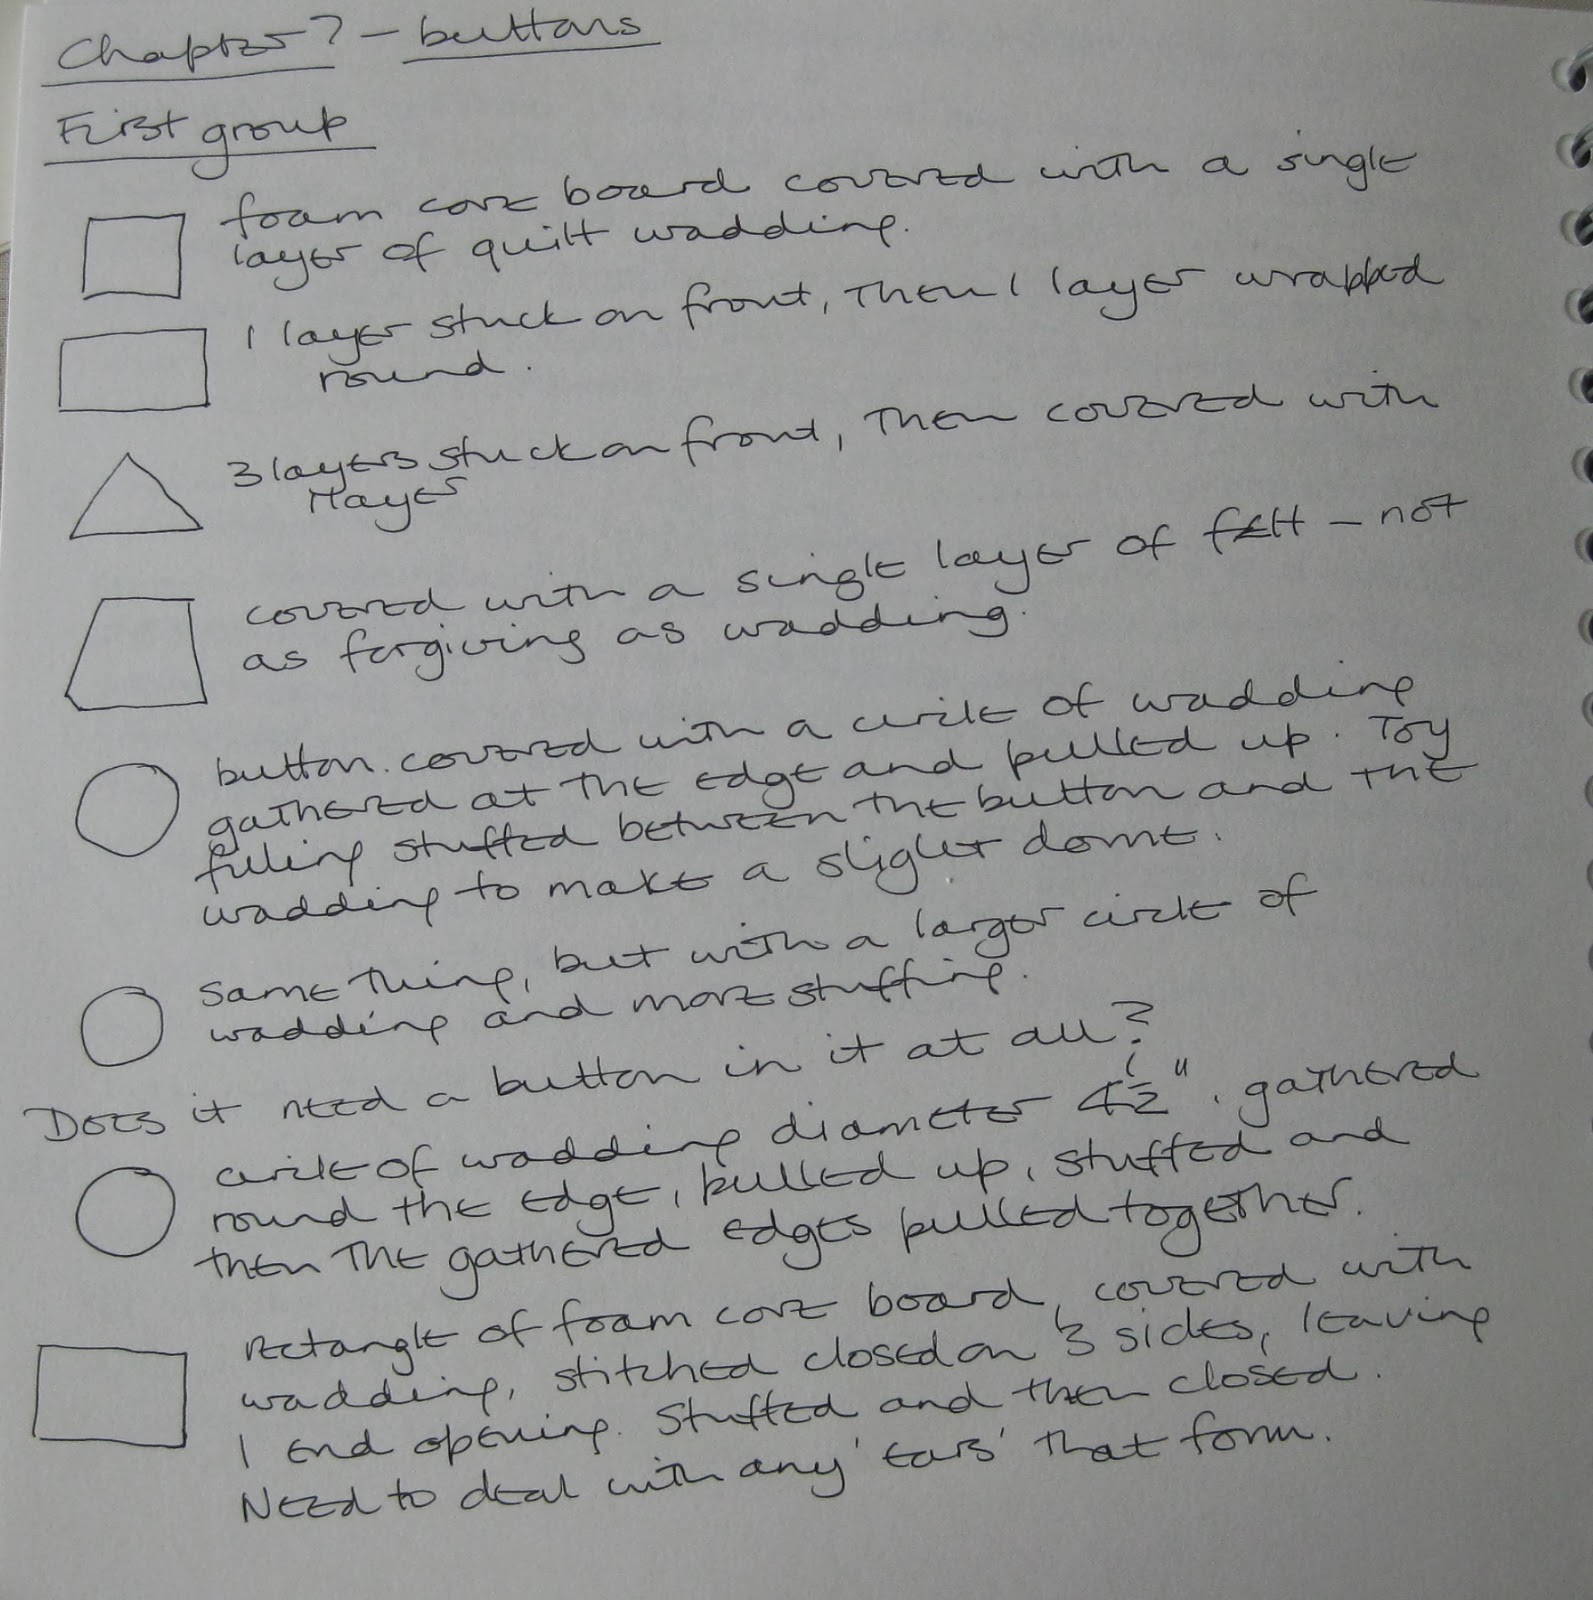 Chapter 7 - buttons
First group
foam core board covered with a single
layer of quilt wadding.
1 layer stuck on front, then 1 layer wrapped
round.
3 layers stuck on front, then covered with
1 layer
covered with a single layer of felt - not
as forgiving as wadding.
button. covered with a circle of wadding
gathered at the edge and pulled up. Toy
filling stuffed between the button and the
wadding to make a slight dome.
Same thing, but with a larger circle of
wadding and more stuffing.
Does it need a button in it at all?
circle of wadding diameter 4½". gathered
round the edge, pulled up, stuffed and
then the gathered edges pulled together.
rectangle of foam core board, covered with
wadding, stitched closed on 3 sides, leaving
1 end opening. Stuffed and then closed.
Need to deal with any 'ears' that form.